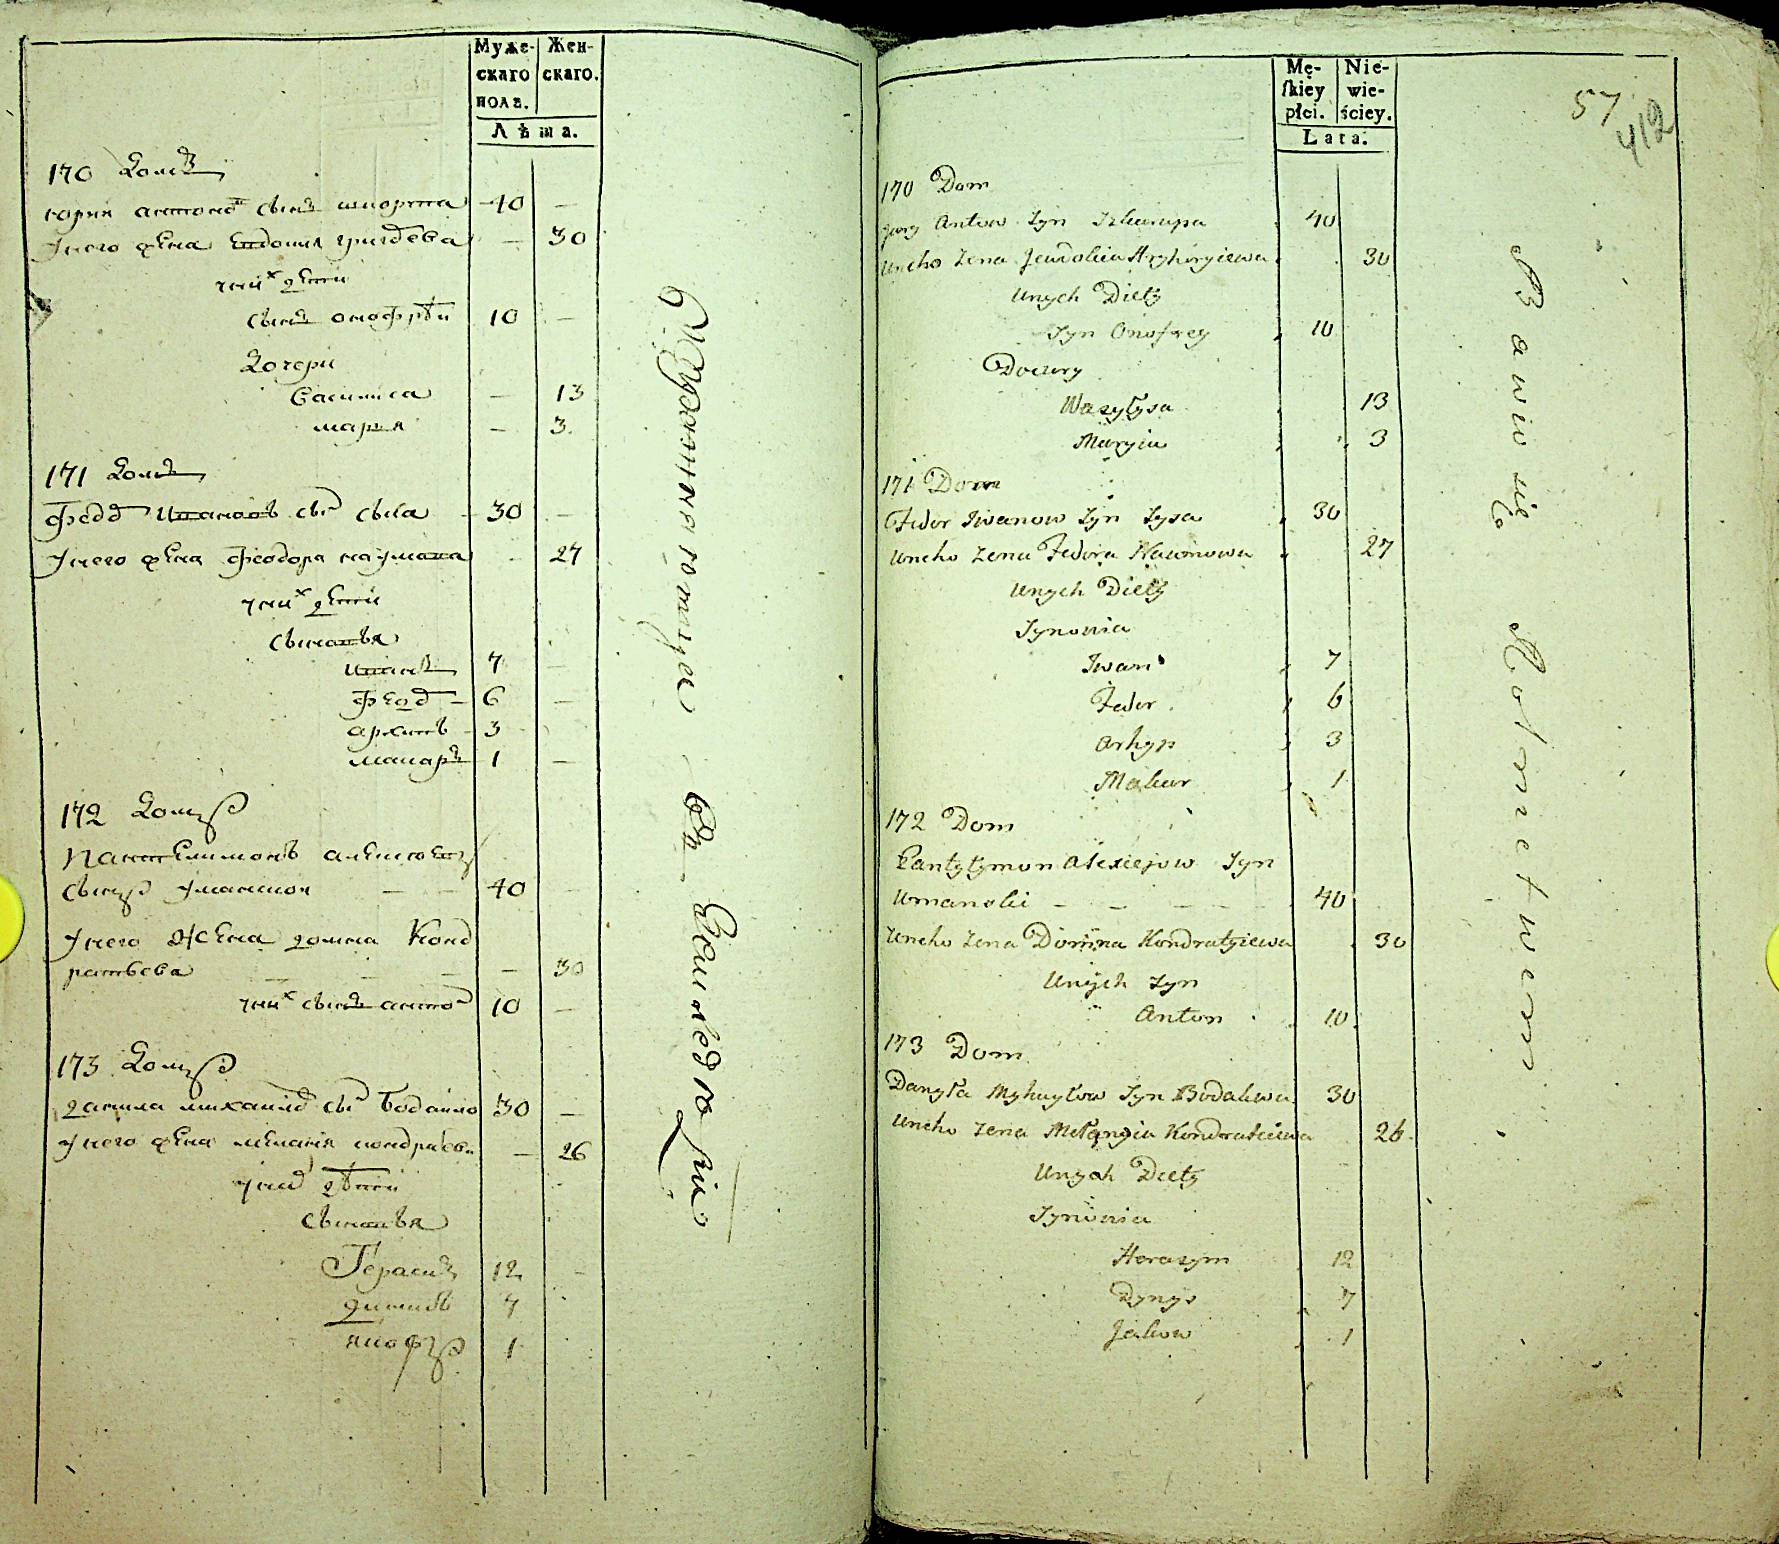 Муже-
скаго
полъ.
Жен-
скаго.
Лѣта.
170 Домъ
Юрий антоновъ сынъ шкорупа 40 —
Унего жена Евдокия григорева — 30
Уних дети
сынъ онофрѣй 10 —
Дочери
Василиса — 13
Мария — 3
171 Домъ
Федор Ивановъ сын сыса 30 —
Унего жена феодора наумава 27
Уних дети
сыновья
Иванъ 7 —
Феодор 6 —
архипъ 3
макаръ 1 —
172 Домъ
Пантелимонъ алексеевъ
сынъ Уманской — — 40
Унего жена домна Конд
ратьева — 30
Уних сынъ антон 10 —
173 Домъ
данила михайлов сын 30 —
Унего жена мелания кондратева — 26
Уних дѣти
сыновья
Герасим 12 —
денисъ 7
яковъ 1
Mę-
skiey
płci.
Nie-
wie-
ściey.
Lata.
57
412
170 Dom
Jury Antow Syn Szkurupa 40
Uneho Zena Jewdokia Hryhoryiewa 30
Unych Diety
Syn Onofrey 10
Doczery
Wasyłysa 13
Maryia 3
171 Dom
Fedor Iwanow Syn Sysa 30
Uneho Zena Fedora Naumowa 27
Unych Diety
Synowia
Iwan 7
Fedor 6
Arhyp 3
Makar 1
172 Dom
Pantyłymon Alexiejow Syn
Umanski — — — — 40
Uneho Zena Domna Kondratyiewa 30
Unych Syn
Anton 10
173 Dom
Danyła Myhayłow Syn 30
Uneho Zena Mełangia Kondratiewa 26
Unych Diety
Synowia
Herasym 12
Dynys 7
Jakow 1
Bawio się Rolnictwem